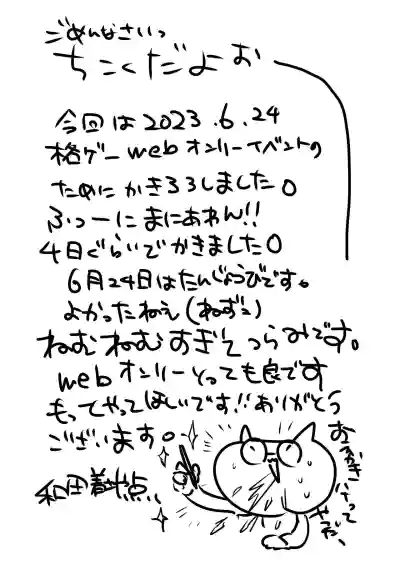 ごめんなさいっ
ちこくだよぉ
今回は2023.6.24
格ゲーwebオンリーイベントの
ためにかきろしました。
ふつーにまにあわん!!
4日ぐらいでかきました。
6月24日はたんじょうびです。
よかったねぇ(ねずこ)
ねむねむすぎてつらみです。
webオンリーとっても良です
もってやってほしいです!!ありがとう
ございます。
和田